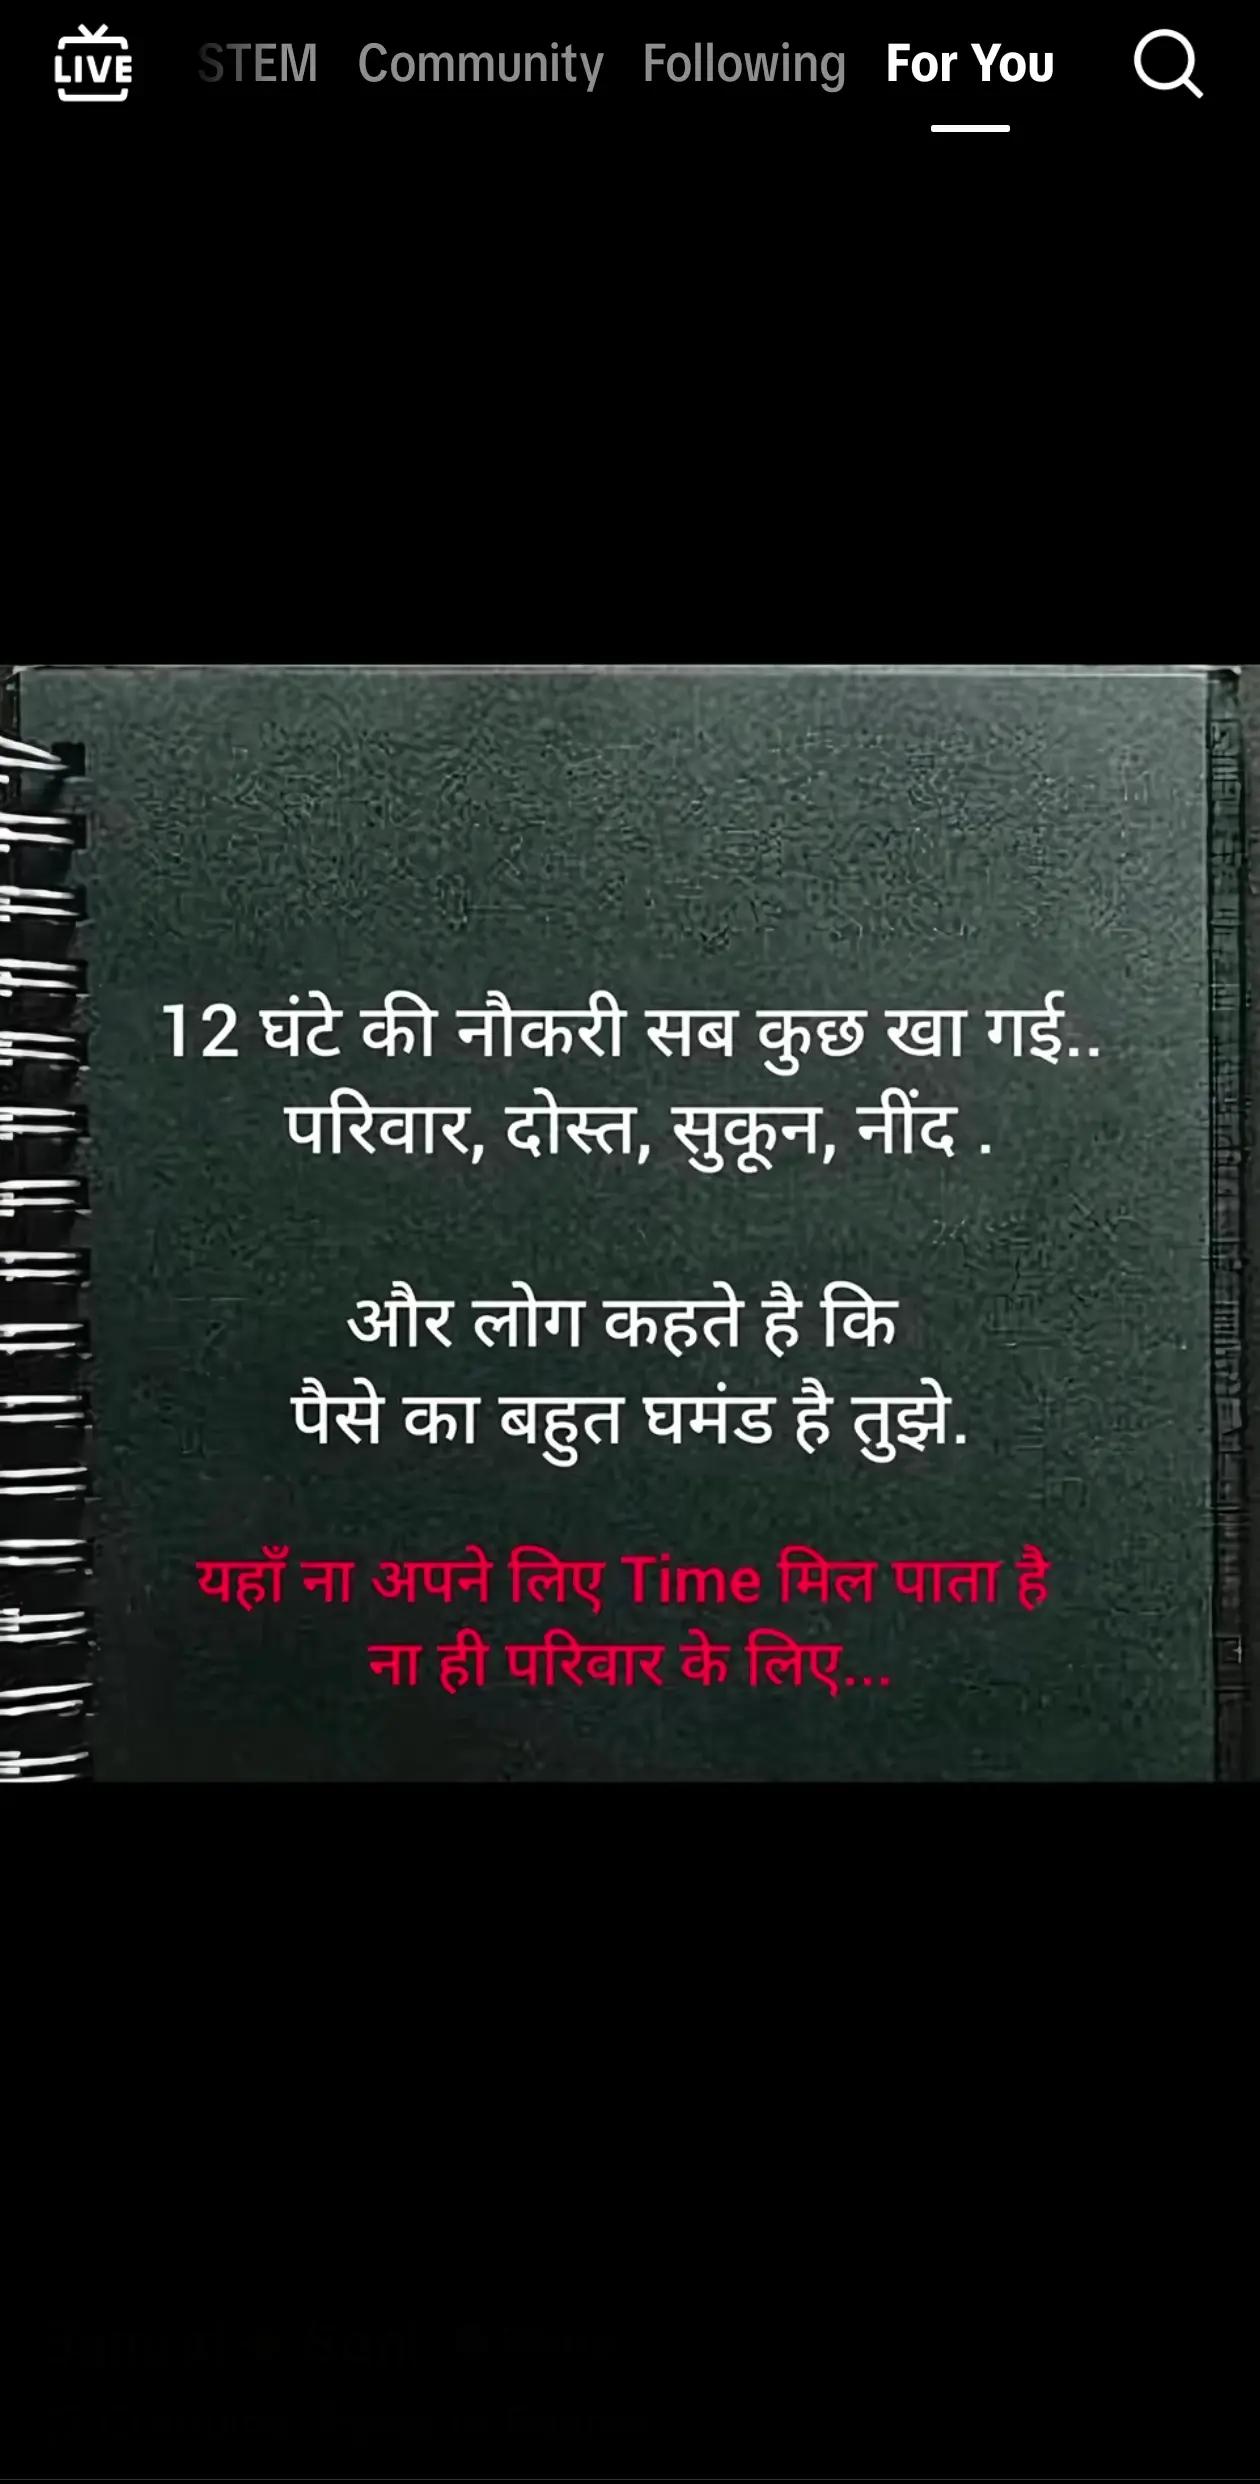 LIVE STEM Community Following For You
12 घंटे की नौकरी सब कुछ खा गई..
परिवार, दोस्त, सुकून, नींद .
और लोग कहते है कि
पैसे का बहुत घमंड है तुझे.
यहाँ ना अपने लिए Time मिल पाता है
ना ही परिवार के लिए...